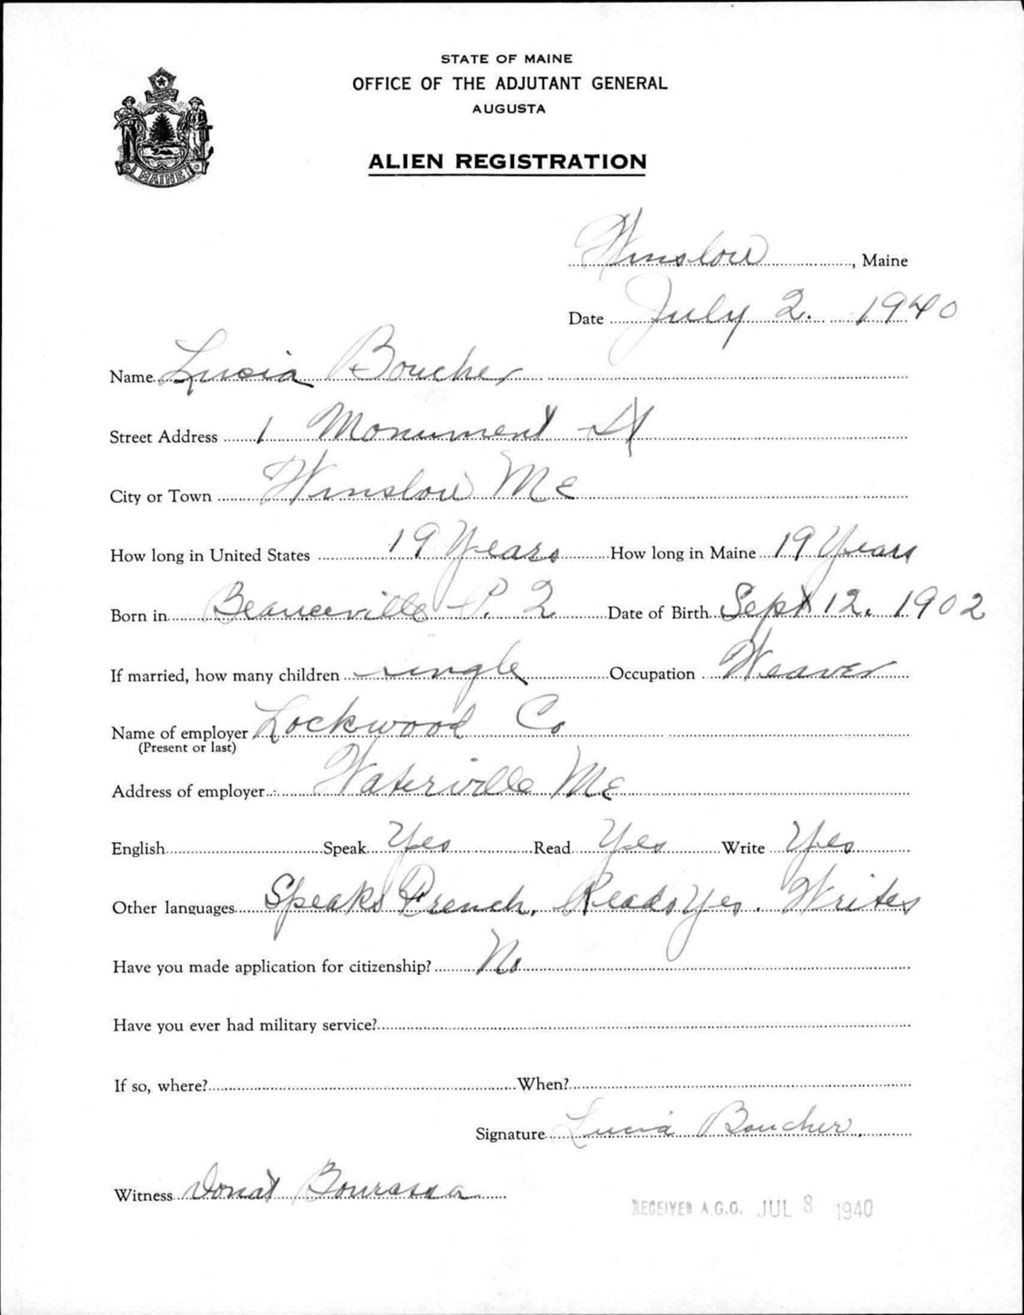 STATE OF MAINE
OFFICE OF THE ADJUTANT GENERAL
AUGUSTA
MAINE
ALIEN REGISTRATION
Winslow, Maine
Date July 2. 1940
Name Lucia Boucher
Street Address 1 Monument St
City or Town Winslow Me
How long in United States 19 Years How long in Maine 19 Years
Born in Beauceville P. Q Date of Birth Sept 12. 1902
If married, how many children single Occupation Weaver
Name of employer Lockwood Co
(Present or last)
Address of employer Waterville Me
English Speak Yes Read Yes Write Yes
Other languages Speaks French. Reads Yes. Writes
Have you made application for citizenship? No
Have you ever had military service?
If so, where? When?
Signature Lucia Boucher.
Witness Donat Bourassa
RECEIVED A.G.O. JUL 8 1940